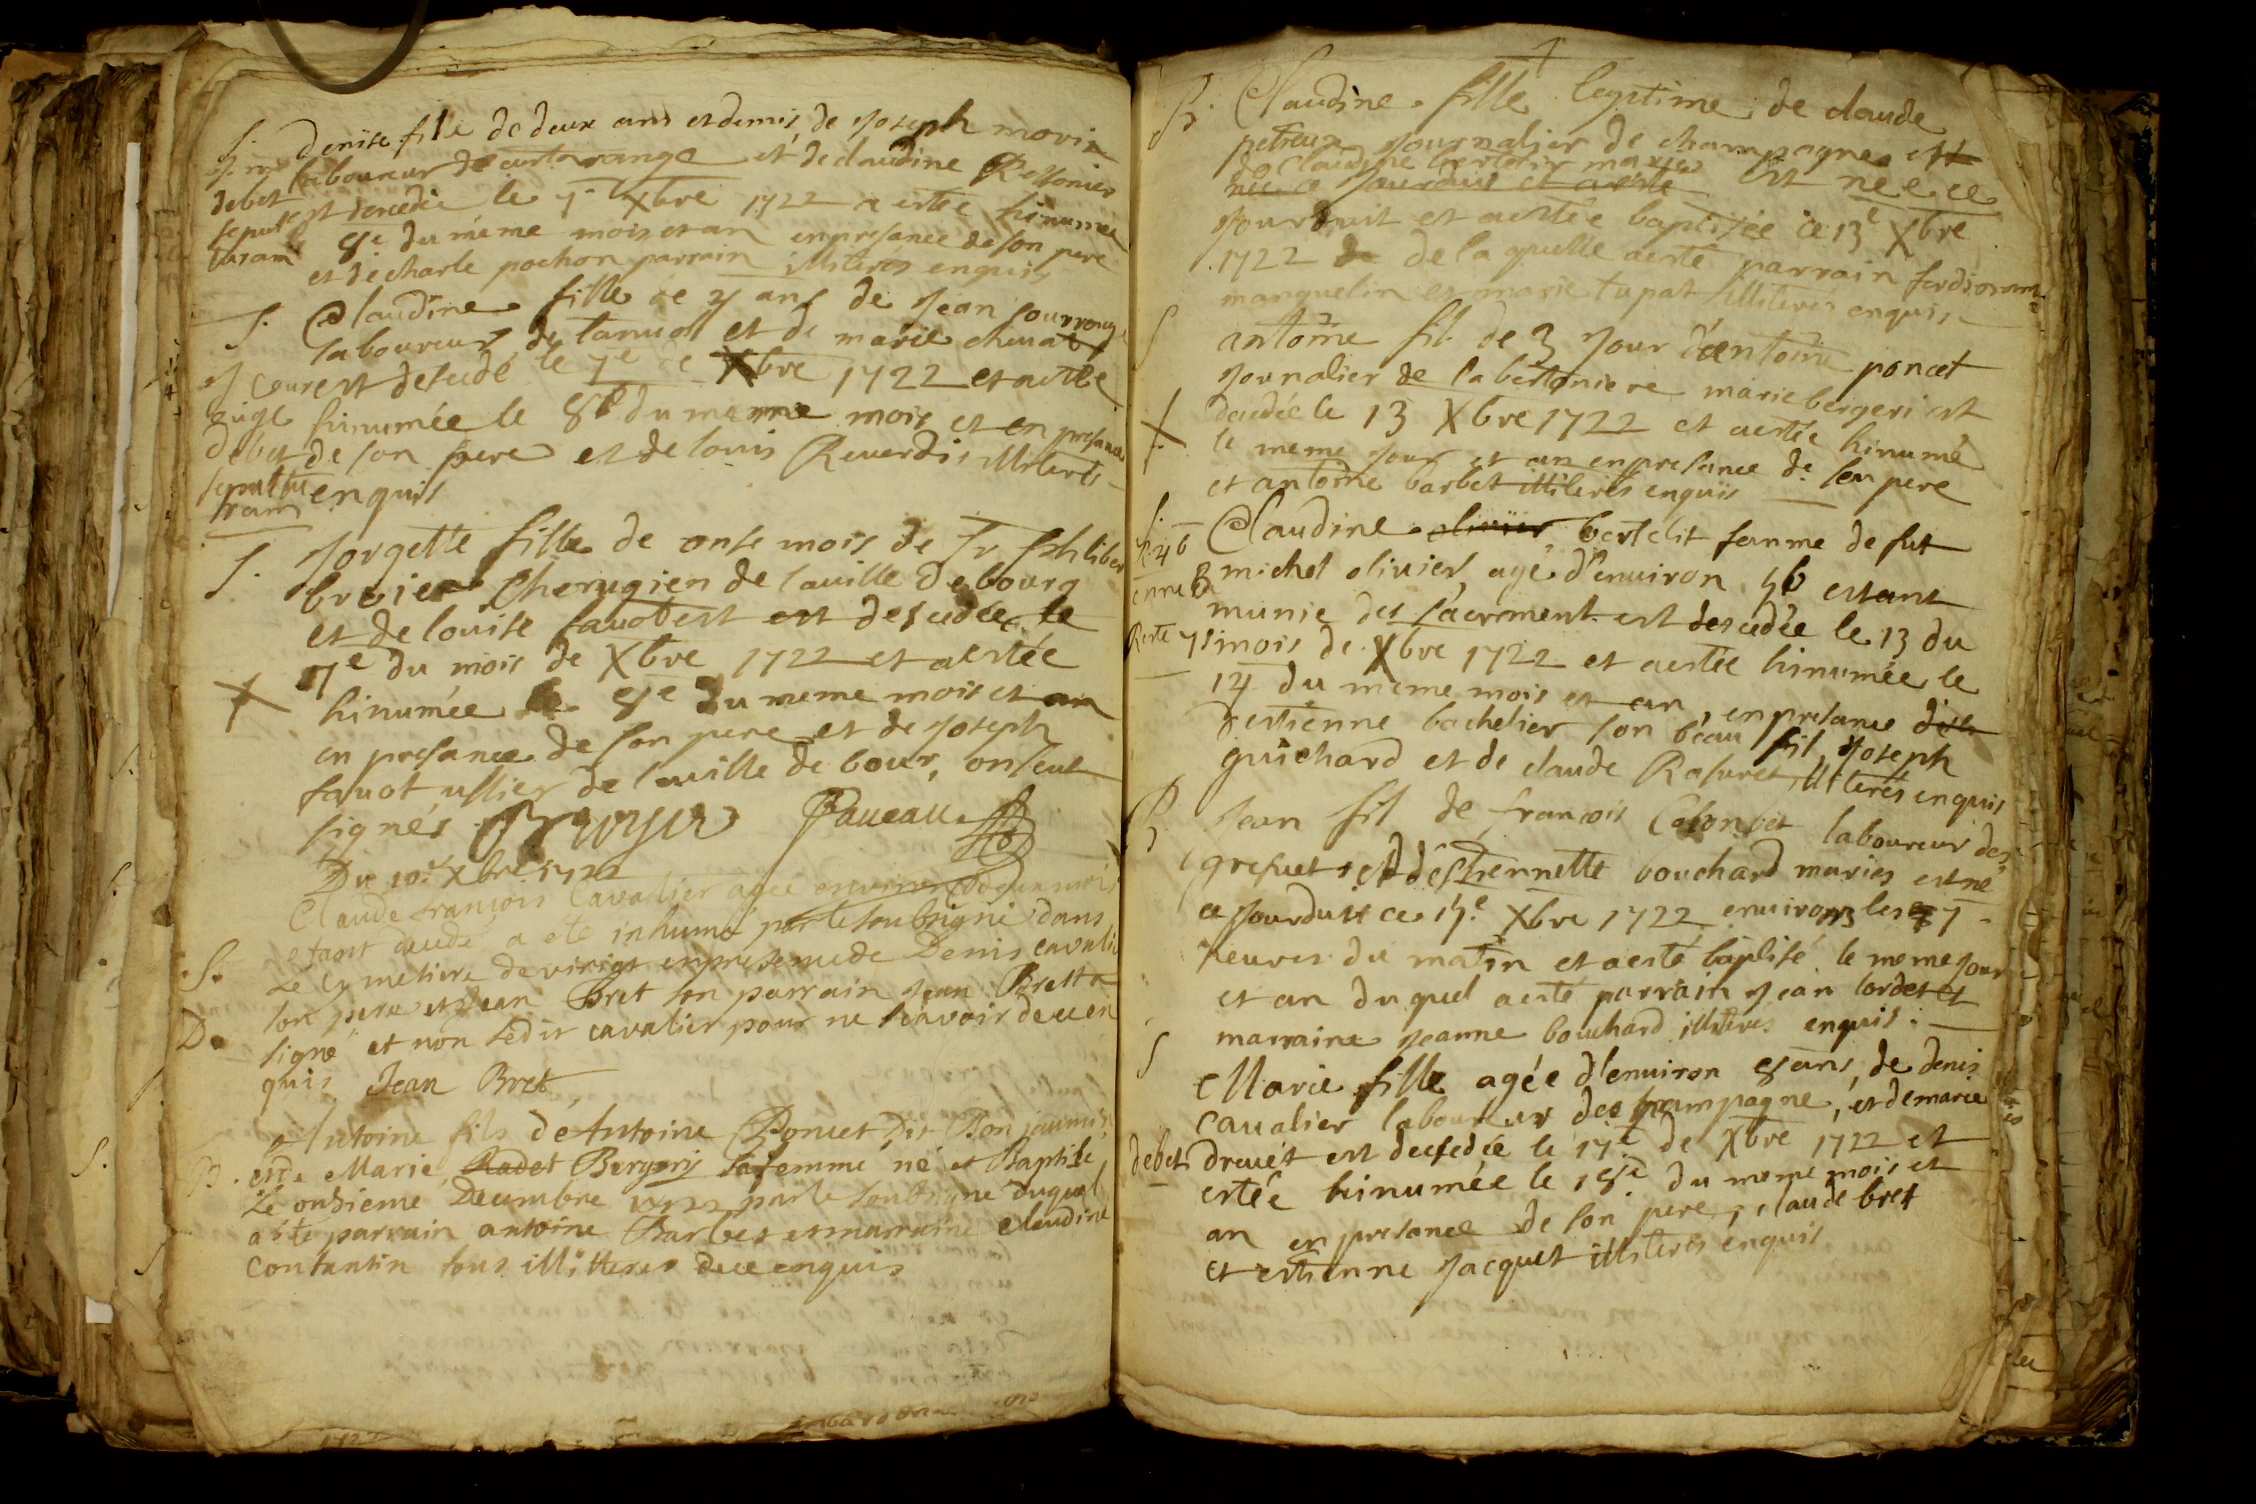 S. Denise fille de deux ans et demis, de Joseph morin
laboureur de curtarange et de claudine Ressonier
debet est decedée le 7e Xbre 1722 a estée hinumée
8e du méme mois et an en presance de son pere
et de charle pochon parrain illiteres enquis
S. Claudine fille de 4 ans de Jean
laboureur de tanuol et de marie
est desedé le 7e de Xbre 1722 et a estée
hinumée le 8e du meme mois et en presance
debet de son pere et de louis Reuerdi illiterés
enquis
S. Jorgette fille de onse mois de Sr philiber
broier Cherugien de la uille de bourg
et de louise fauot est est desedée le
7e du mois de Xbre 1722 et a estée
X hinumée le 8e du meme mois et an
en presance de son pere et de Joseph
fauot ussier de la uille de bour, onseut
signés
Du 10e Xbre 1722
Claude françois Cavalier agée environ de deux mois
etant decedé a été inhumé par le soubsigné dans
S. Le cymetiere de viriat en presence de Denis cavalier
D. son pere et Jean Bret son parrain Jean Bret a
signé et non ledit cavalier pour ne scavoir de ce en
quis Jean Bret
Antoine fils de Antoine Poncet dit Bon
B. et de Marie Radet Bergeris sa femme né et Baptisé
Le onsieme Decembre 1722 par le soubsigné duquel
a été parrain antoine Barbet et marraine claudine
Contantin tous illitteres de ce enquis
B. Claudine fille legitime de claude
petreux Journalier de champagne et
de Claudine maries
née ce Jourduis et a esté est née ce
Jourduit et a estée baptisée ce 13e Xbre
1722 de de la quelle a esté parrain
manguelin et marie tupat illiteres enquis
S antoine fil de 3 Jour d'antoine poncet
Journalier de la bertoniere marie bergeri est
X decedée le 13 Xbre 1722 et a estée hinumé
le meme Jour et an en presance de son pere
et antoine barbet illiterés enquis
S. Claudine oliuier bertelit fanme de fut
michel oliuier, agé d'enuiron 46 estant
munie des sacrement est desedée le 13 du
mois de Xbre 1722 et a estée hinumée le
14 du meme mois et an, en presance de
d'estienne bachelier son beau fil, Joseph
guichard et de claude Rasuret illiterés enquis
B Jean fil de françois Colonbet laboureur des
greffets et d'estiennette bouchard maries est né
ce Jourduit ce 15e Xbre 1722 enuiron les 7
heures du matin et a esté baptisé le meme Jour
et an duquel a esté parrain Jean tordet et
marraine Jeanne bouchard illiteres enquis.
S Marie fille agée d'enuiron 8 ans, de denis
caualier laboureur de champagne, et de marie
debet dreuet est decedée le 17e de Xbre 1722 et
estée hinumée le 18e du meme mois et
an en presance de son pere, claude bret
et estienne Jacquet illiterés enquis